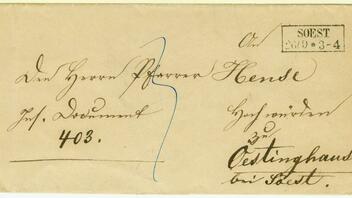 SOEST
26/9 * 3-4
An
Den Herrn Pfarrer Hense
Ins. Document
Hochwürden
403.
zu
Oestinghaus
bei Soest.